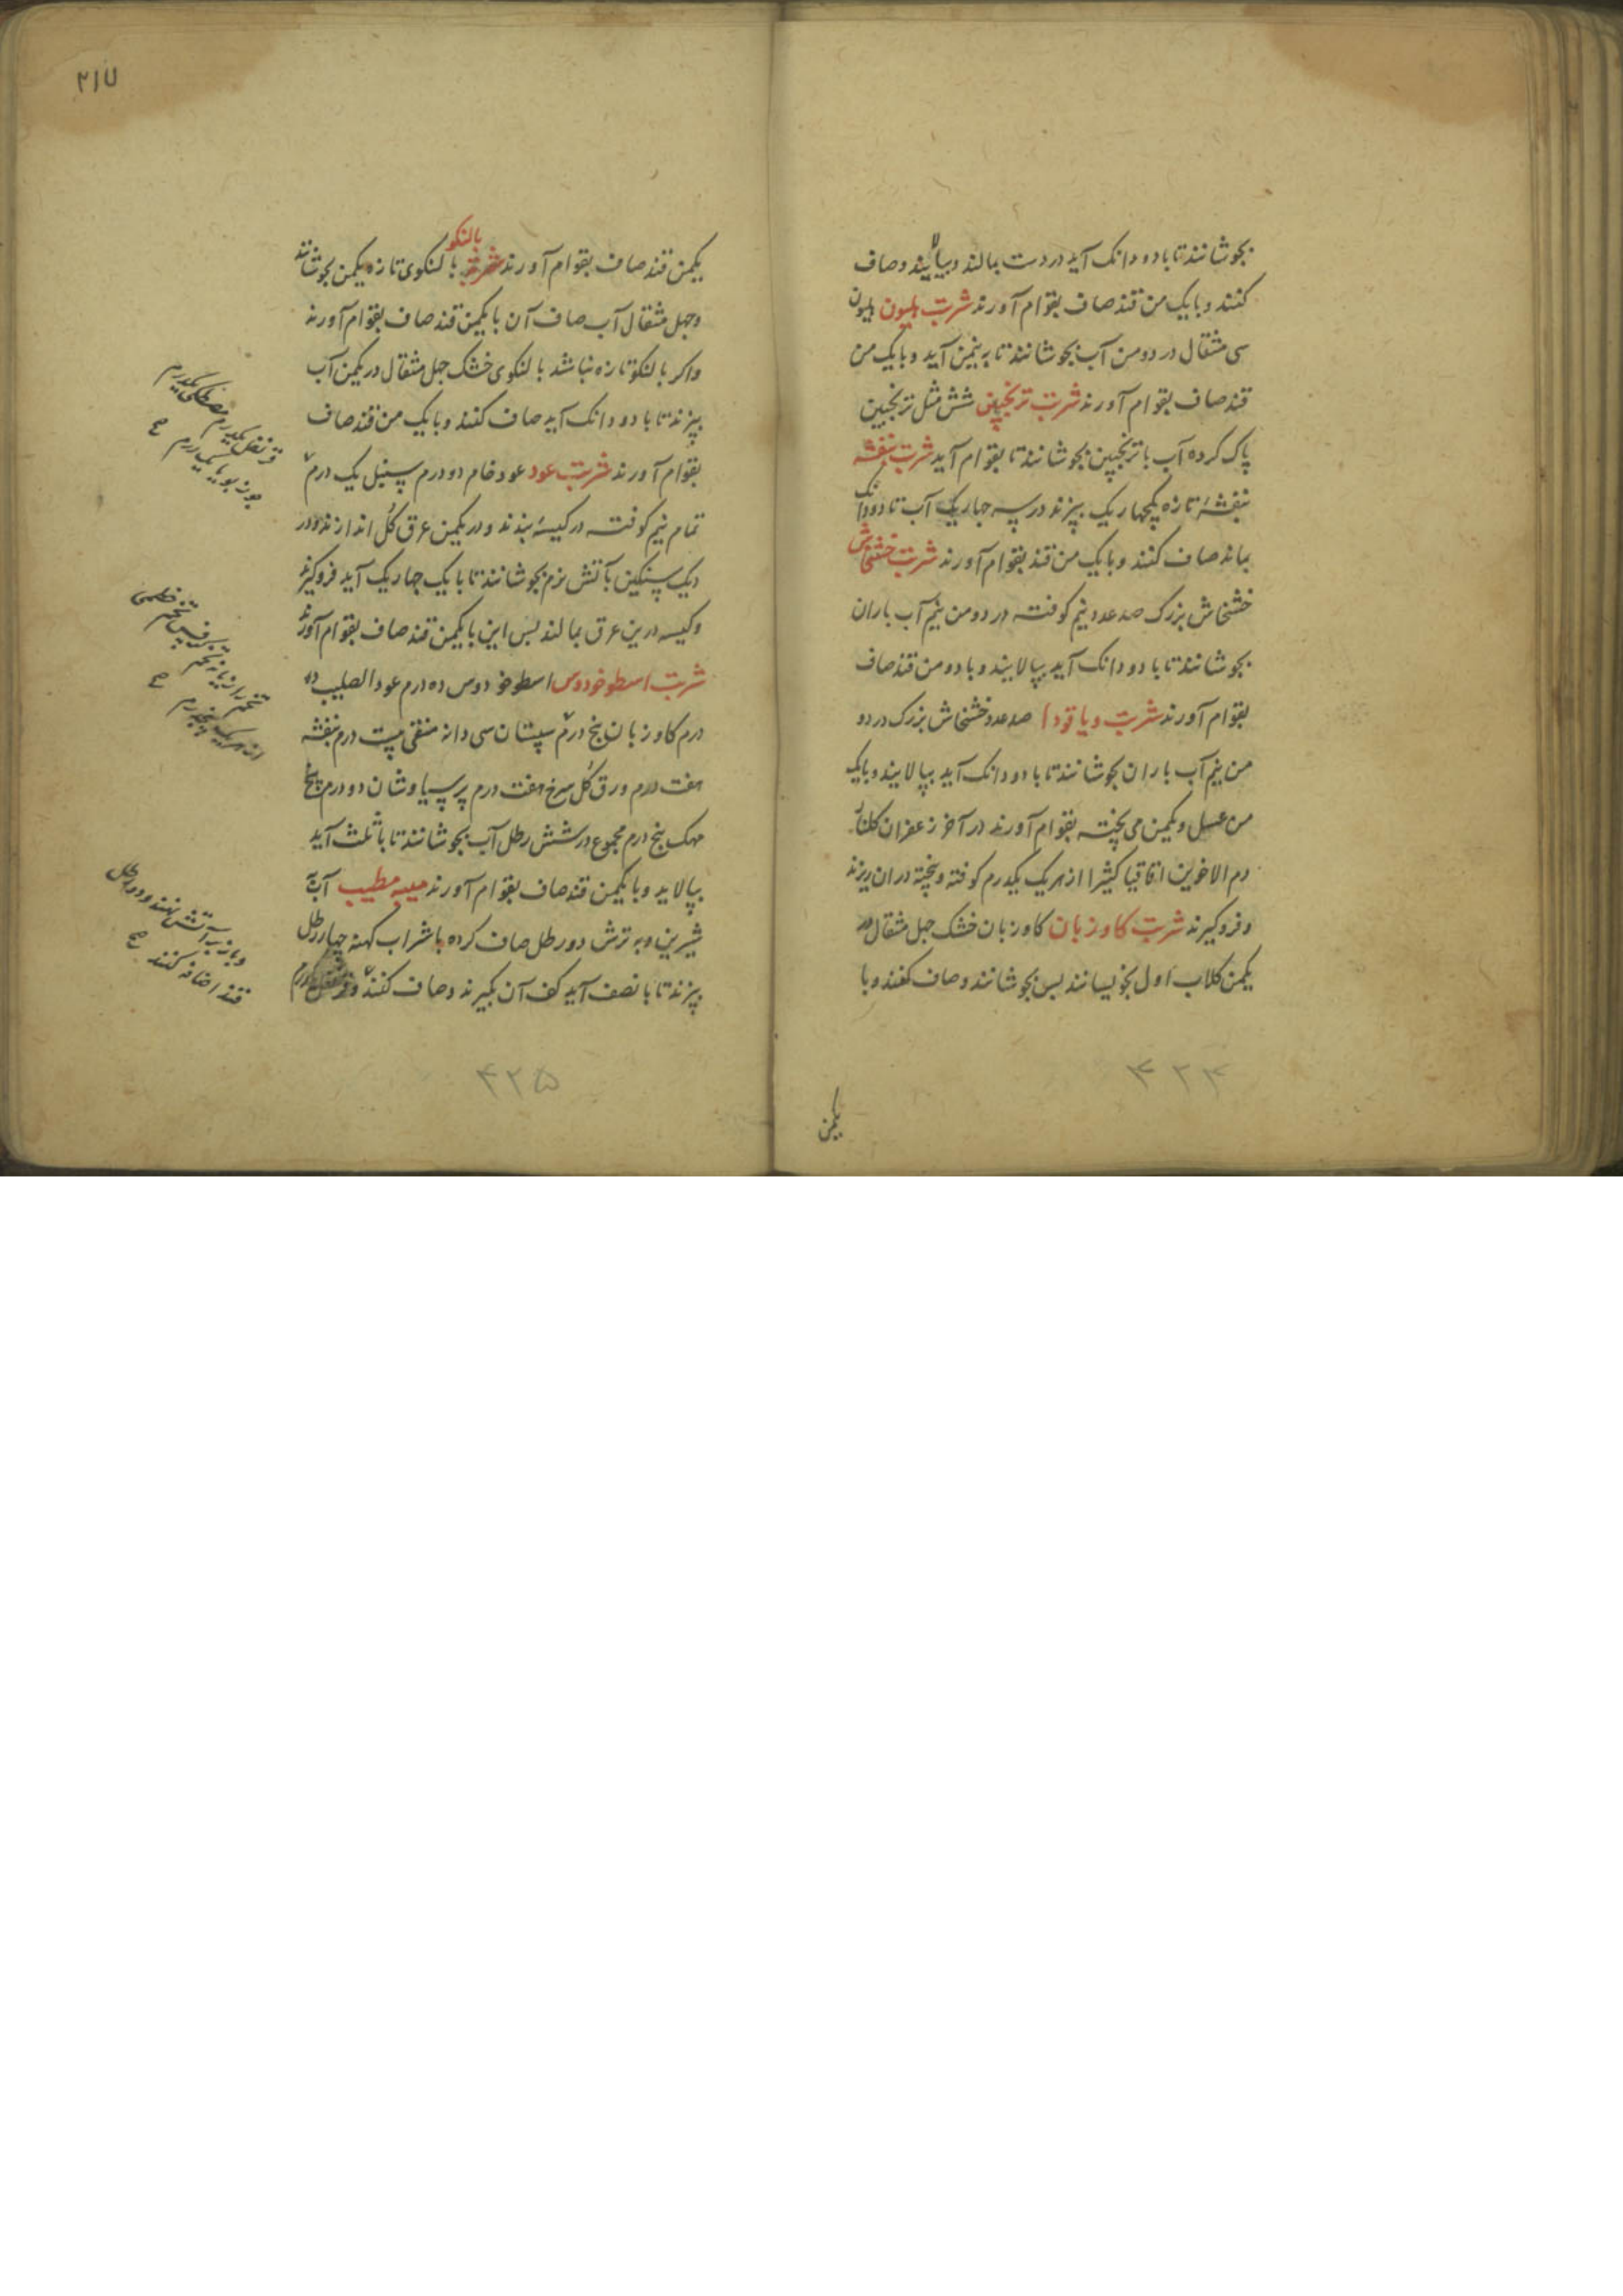 بجوشانند تا بادو دانک آید در دست بمالند و بپالایند و صاف
کنند و بایک من قند صاف بقوام آورند شربت هلیون هلیون
سی مثقال در دو من آب بجوشانند تا به نیمن آید و بایک من
قند صاف بقوام آورند شربت ترنجبین شش مثل ترنجبین
پاک کرده آب با ترنجبین بجوشانند تا بقوام آید شربت بنفشه
بنفشهٔ تازه یکچهاریک بپزند در سه چهاریک آب تا دودانک
بماند صاف کنند و بایک من قند بقوام آورند شربت خشخاش
خشخاش بزرک صد عدد نیم کوفته در دو من نیم آب باران
بجوشانند تا بادو دانک آید بپالایند و با دو من قند صاف
بقوام آورند شربت دیاقودا صد عدد خشخاش بزرک در دو
من نیم آب باران بجوشانند تا بادو دانک آید بپالایند و بایک
من عسل و یکمن می پخته بقوام آورند در آخر زعفران کلنار
دم الاخوین اقاقیا کثیرا از هریک یکدرم کوفته و پخته دران ریزند
و فروکیرند شربت کاوزبان کاوزبان خشک جهل مثقال در
یکمن کلاب اول بخیسانند بس بجوشانند و صاف کنند و با
۴۲۴
یکمن
۲۱۷
بالنکو
یکمن قند صاف بقوام آورند شربت بالنکوی تازه یکمن بجوشانند
و جهل مثقال آب صاف آن با یکمن قند صاف بقوام آورند
و اکر بالنکو تازه نباشد بالنکوی خشک جهل مثقال در یکمن آب
بپزند تا بادو دانک آید صاف کنند و بایک من قند صاف
بقوام آورند شربت عود عود خام دو درم سنبل یک درم
تمام نیم کوفته در کیسهٔ بندند و در یکمن عرق کل اندازند و در
دیک سنکین بآتش نرم بجوشانند تا بایک چهاریک آید فروکیرند
و کیسه درین عرق بمالند بس این با یکمن قند صاف بقوام آورند
شربت اسطوخودوس اسطوخودوس ده درم عود الصلیب ده
درم کاوزبان بنج درم سپستان سی دانه منقی بیست درم بنفشه
هفت درم ورق کل سرخ هفت درم پرسیاوشان دو درم بیخ
مهک بنج درم مجموع در شش رطل آب بجوشانند تا باثلث آید
بپالاید و با یکمن قند صاف بقوام آورند میبه مطیب آب به
شیرین و به ترش دو رطل صاف کرده باشراب کهنه چهار رطل
بپزند تا با نصف آید کف آن بکیرند و صاف کنند
مصطکی یکدرم
قرنفل یکدرم
جوز بویا یک درم
تخم خطمی
تخم رازیانه تخم کرفس
از هریک پنجدرم
و باز برآتش نهند و دو رطل
قند اضافه کنند
۴۲۵